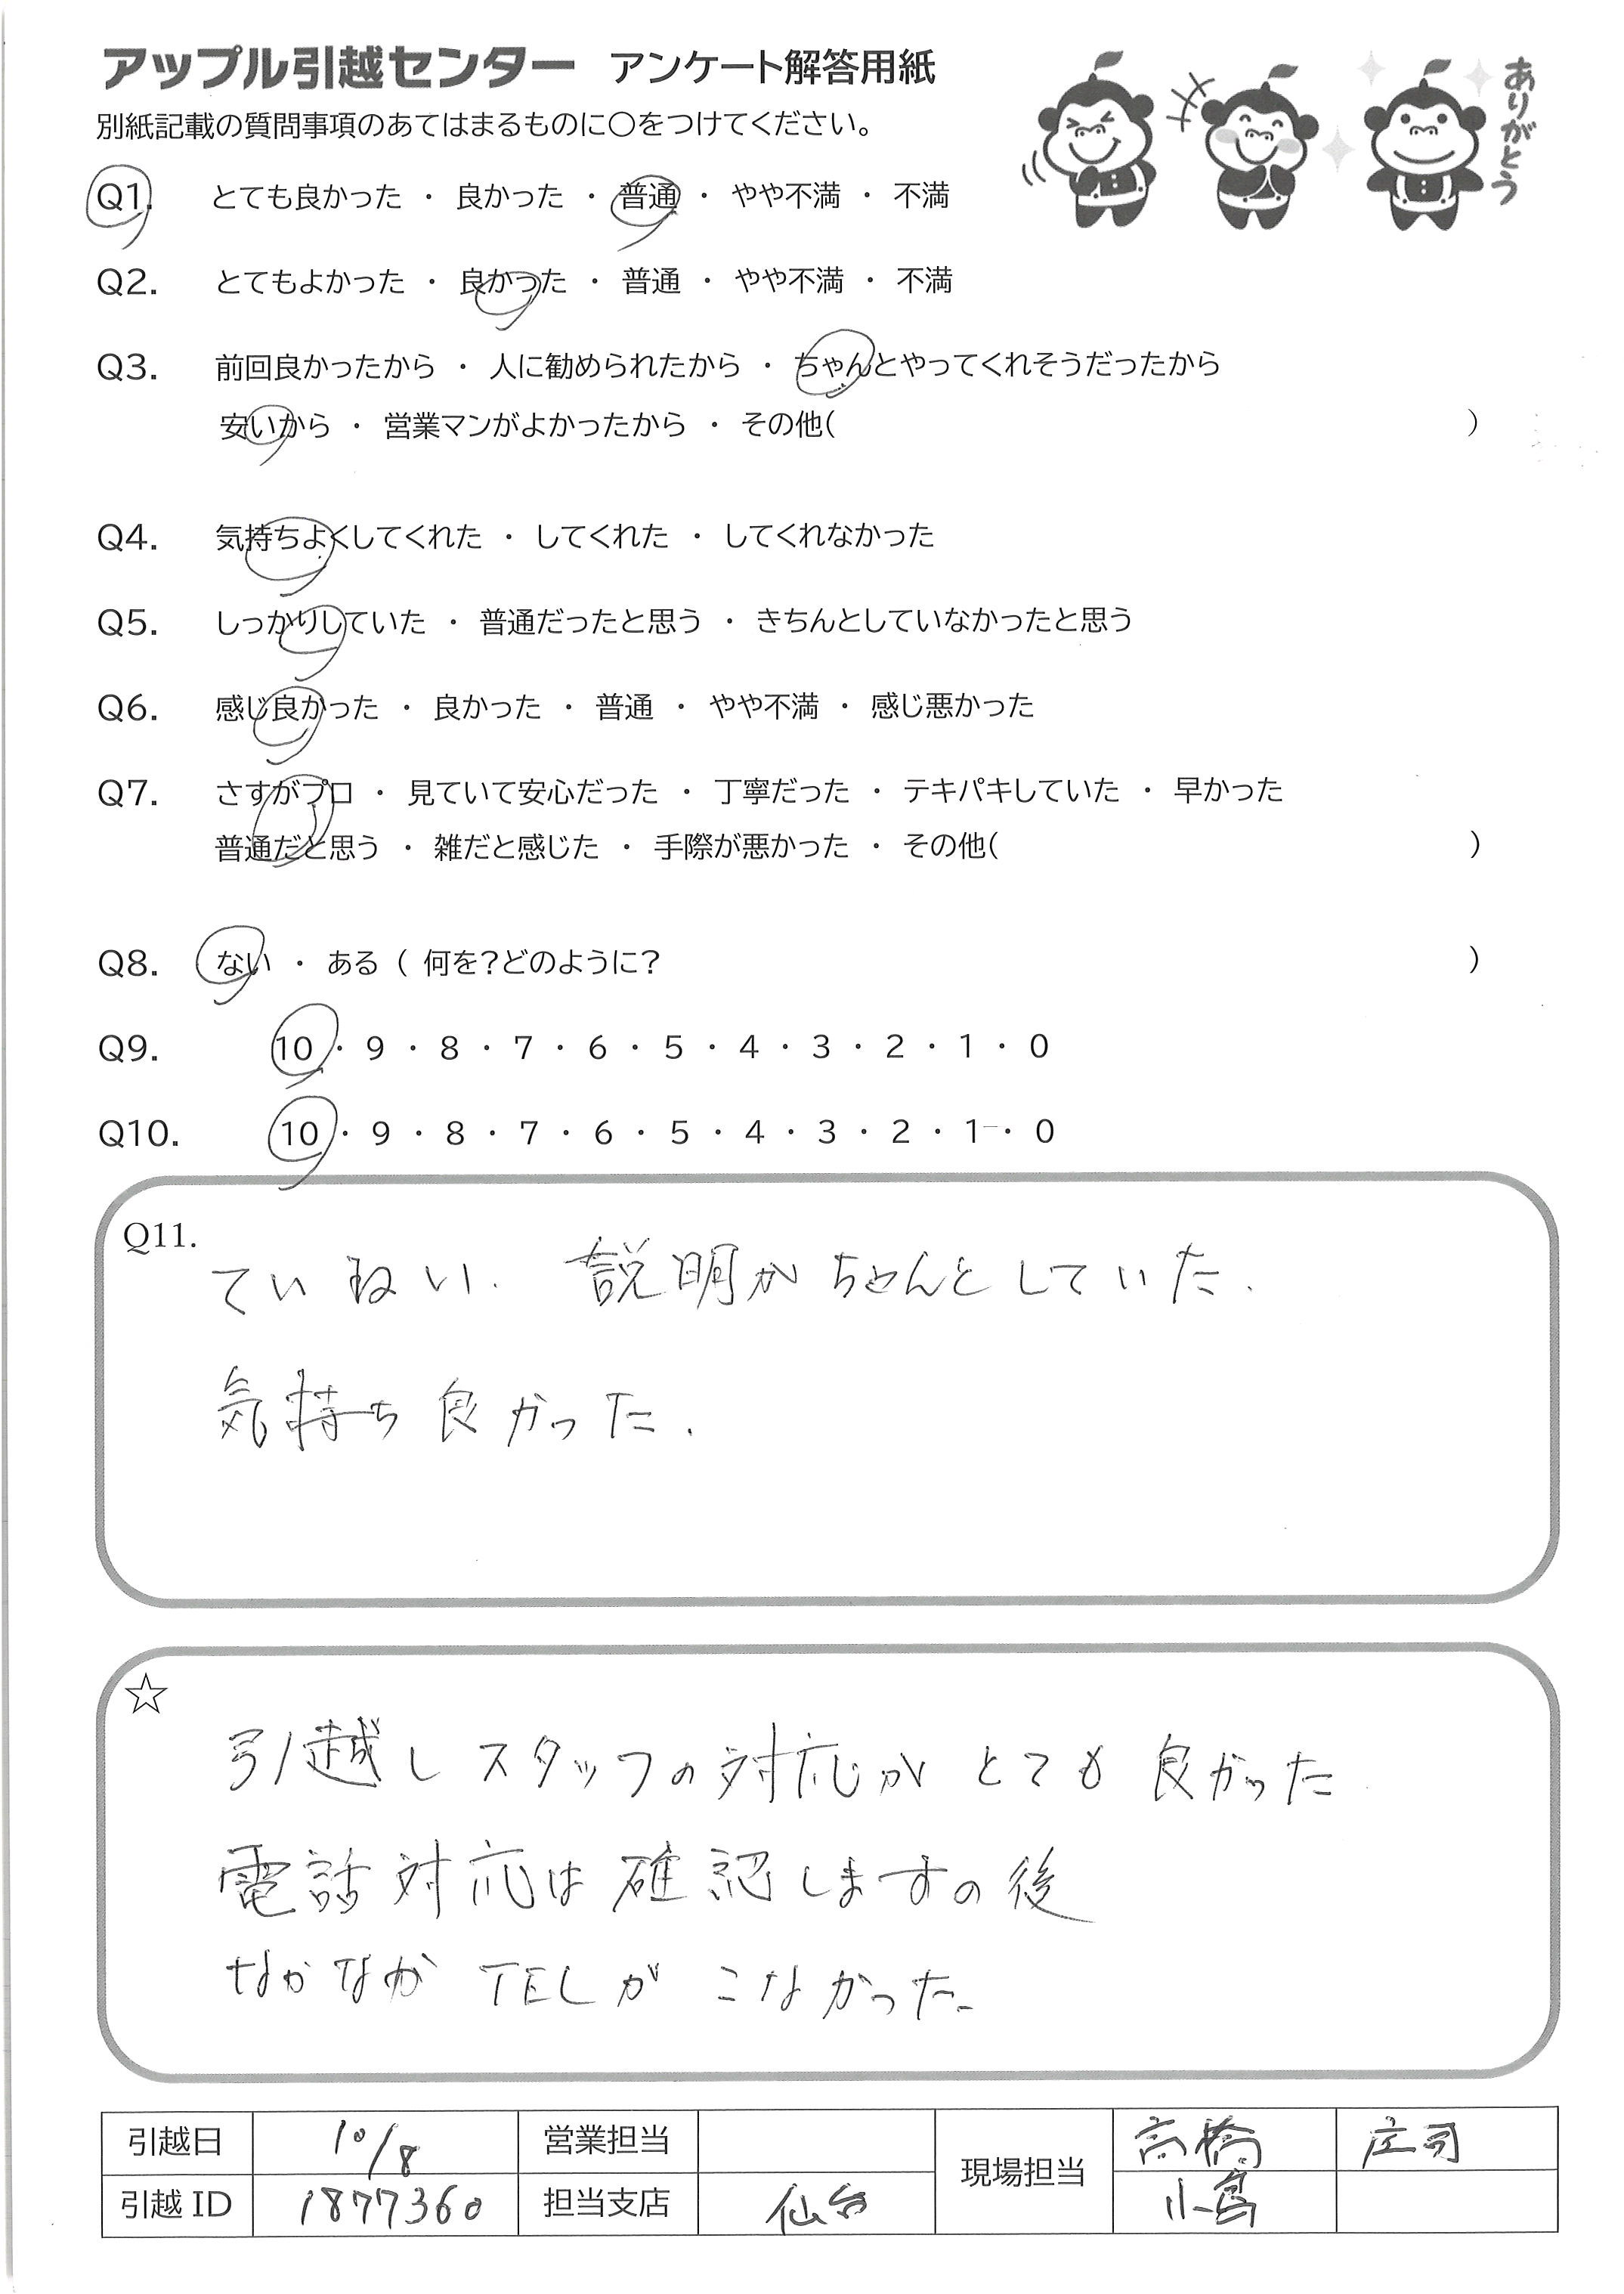 アップル引越センター アンケート解答用紙
ありがとう
別紙記載の質問事項のあてはまるものに○をつけてください。
Q1. とても良かった ・ 良かった ・ 普通 ・ やや不満 ・ 不満
Q2. とてもよかった ・ 良かった ・ 普通 ・ やや不満 ・ 不満
Q3. 前回良かったから ・ 人に勧められたから ・ ちゃんとやってくれそうだったから
安いから ・ 営業マンがよかったから ・ その他( )
Q4. 気持ちよくしてくれた ・ してくれた ・ してくれなかった
Q5. しっかりしていた ・ 普通だったと思う ・ きちんとしていなかったと思う
Q6. 感じ良かった ・ 良かった ・ 普通 ・ やや不満 ・ 感じ悪かった
Q7. さすがプロ ・ 見ていて安心だった ・ 丁寧だった ・ テキパキしていた ・ 早かった
普通だと思う ・ 雑だと感じた ・ 手際が悪かった ・ その他( )
Q8. ない ・ ある ( 何を?どのように? )
Q9. 10 ・ 9 ・ 8 ・ 7 ・ 6 ・ 5 ・ 4 ・ 3 ・ 2 ・ 1 ・ 0
Q10. 10 ・ 9 ・ 8 ・ 7 ・ 6 ・ 5 ・ 4 ・ 3 ・ 2 ・ 1 ・ 0
Q11.
ていねい. 説明がちゃんとしていた.
気持ち良かった.
☆
引越しスタッフの対応がとても良かった
電話対応は確認しますの後
なかなかTELがこなかった.
引越日 10/8 営業担当 現場担当 高橋 庄司
引越ID 1877360 担当支店 仙台 小島